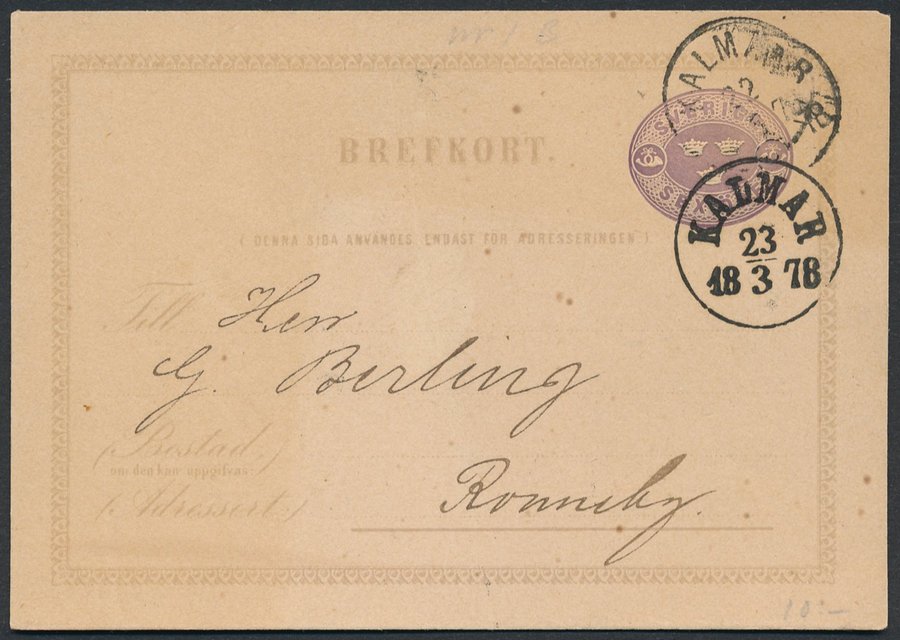 KALMAR
SVERIGE
BREFKORT.
KALMAR
23
18 3 78
(DENNA SIDA ANVÄNDES ENDAST FÖR ADRESSERINGEN.)
Till Herr
G. Berling
(Bostad,)
om den kan uppgifvas:
(Adressort)
Ronneby.
10:-